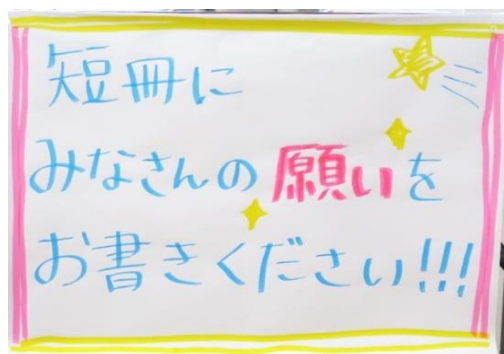 短冊に
みなさんの願いを
お書きください!!!